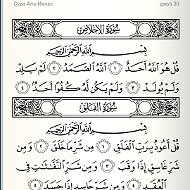 Сура Аль-Ихлас джуз 30
سُورَةُ الإِخْلَاصِ
بِسْمِ اللَّهِ الرَّحْمَٰنِ الرَّحِيمِ
قُلْ هُوَ اللَّهُ أَحَدٌ ١ اللَّهُ الصَّمَدُ ٢ لَمْ يَلِدْ
وَلَمْ يُولَدْ ٣ وَلَمْ يَكُن لَّهُ كُفُوًا أَحَدٌ ٤
سُورَةُ الفَلَقِ
بِسْمِ اللَّهِ الرَّحْمَٰنِ الرَّحِيمِ
قُلْ أَعُوذُ بِرَبِّ الْفَلَقِ ١ مِن شَرِّ مَا خَلَقَ ٢ وَمِن
شَرِّ غَاسِقٍ إِذَا وَقَبَ ٣ وَمِن شَرِّ النَّفَّاثَاتِ فِي
الْعُقَدِ ٤ وَمِن شَرِّ حَاسِدٍ إِذَا حَسَدَ ٥